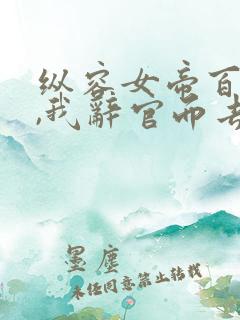 纵容女帝百
,我辞官而去
墨尘
未经同意禁止转载